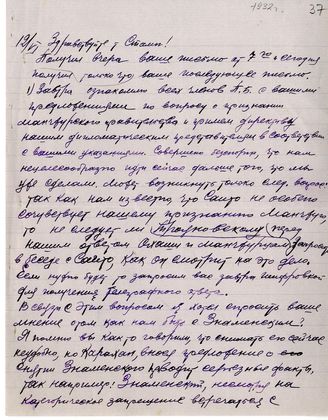 1932 г.
37
19/VI Здравствуйте т. Сталин!
Получил вчера ваше письмо от 7го и сегодня
получил только что ваше последующее письмо.
1) Завтра ознакомлю всех членов П.Б. с вашими
предложениями по вопросу о признании
манчжурского правительства и примем директиву
нашим дипломатическим представителям в соответствии
с вашими указаниями. Совершенно бесспорно, что нам
нецелесообразно идти сейчас дальше того, что мы
уже сделали. Может возникнуть только след. вопрос:
так как нам известно что Сайто не особено
сочувствует нашему признанию Манчжурии,
то не следует ли Трояновскому перед
нашим ответом и Манчжурскому
в беседе с Сайто, как он смотрит на это дело.
Если нужно будет то запросим вас завтра шифровкой
для получения телеграфного ответа.
В связи с этим вопросом я хотел спросить ваше
мнение о том как нам быть с Знаменским?
Я помню вы как то говорили, что снимать его сейчас
неудобно, но Карахан, внося предложение о его
снятии Знаменского приводит серьезные факты,
так например: Знаменский, несмотря на
категорическое запрещение встречаться с